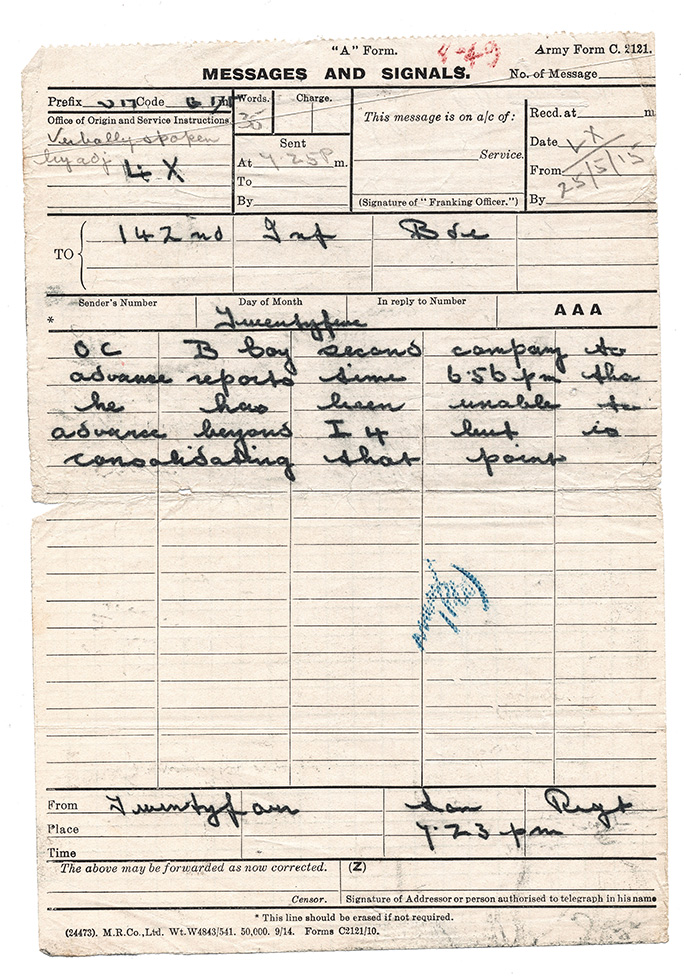 "A" Form.
Army Form C. 2121.
MESSAGES AND SIGNALS.
No. of Message
Prefix Code m
Words.
Charge.
This message is on a/c of:
Recd. at m
Office of Origin and Service Instructions.
35
Verbally spoken
by adj
LX
Sent
At 7.25P m.
To
By
Service.
(Signature of "Franking Officer.")
Date LX
From
25/5/15
By
TO 142nd Inf Bde
Sender's Number
Day of Month
In reply to Number
AAA
* Twentyfive
OC B Coy second company to
advance reports time 6.56 pm tha
he has been unable to
advance beyond I 4 but is
consolidating that point
From Twentyfour Lon Regt
Place
7.23 pm
Time
The above may be forwarded as now corrected.
(Z)
Censor.
Signature of Addressor or person authorised to telegraph in his name
* This line should be erased if not required.
(24473). M.R.Co.,Ltd. Wt.W4843/541. 50,000. 9/14. Forms C2121/10.